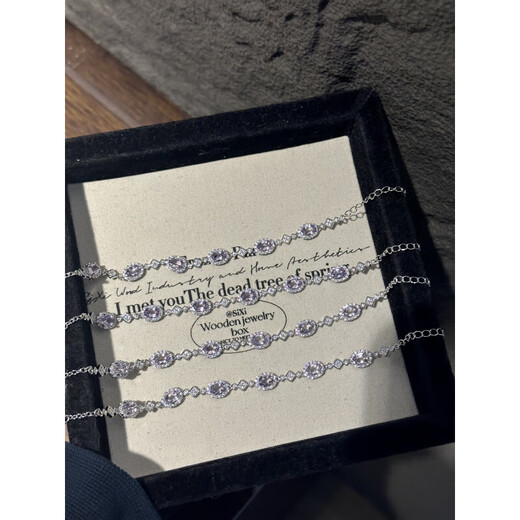 SiXi Wood Industry and Home Aesthetics
I met you The dead tree of spri
@SiXi
Wooden jewelry
box